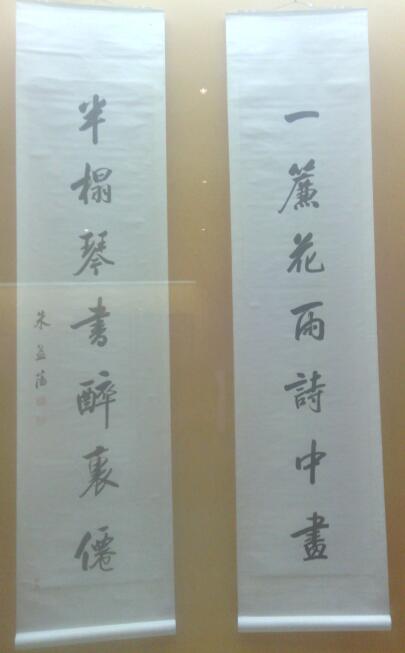 一簾花雨詩中畫
半榻琴書醉裏僊
朱益藩